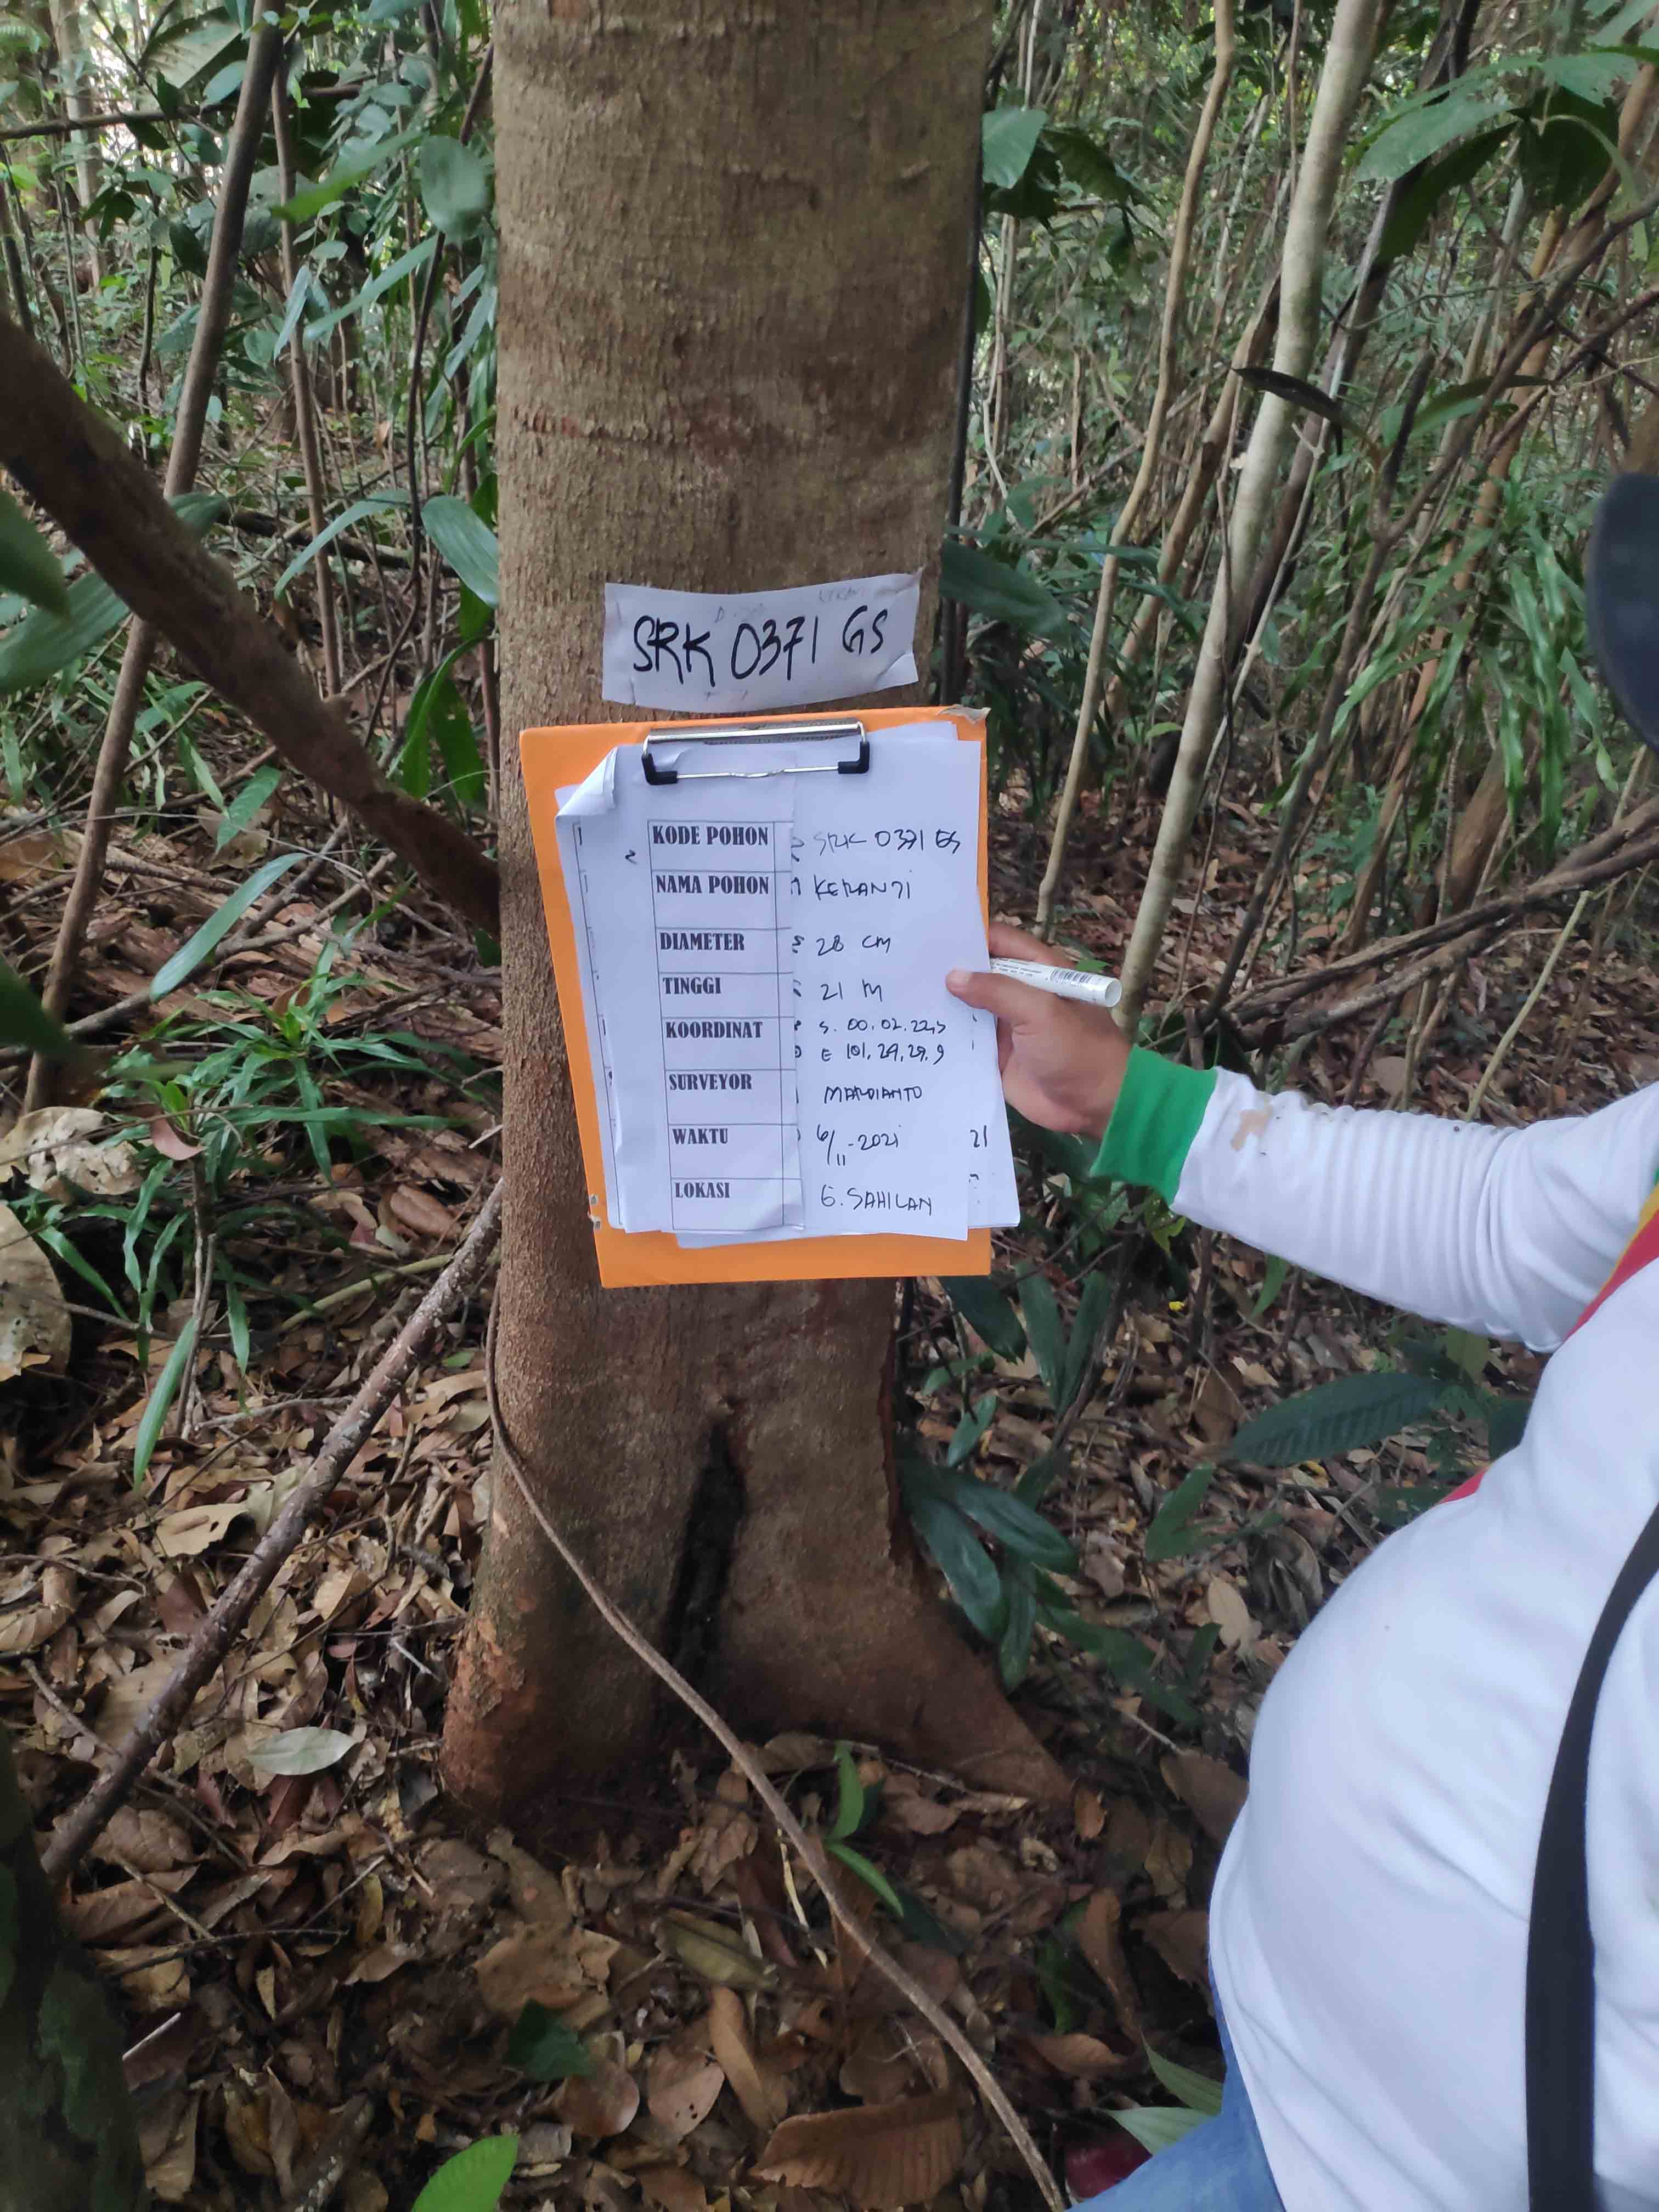 SRK 0371 GS
KODE POHON SRK 0371 GS
NAMA POHON KERANJI
DIAMETER 28 CM
TINGGI 21 M
KOORDINAT S. 00. 02. 22,5
E 101. 29. 29. 9
SURVEYOR MARDIANTO
WAKTU 6/11 - 2021
21
LOKASI G. SAHILAN